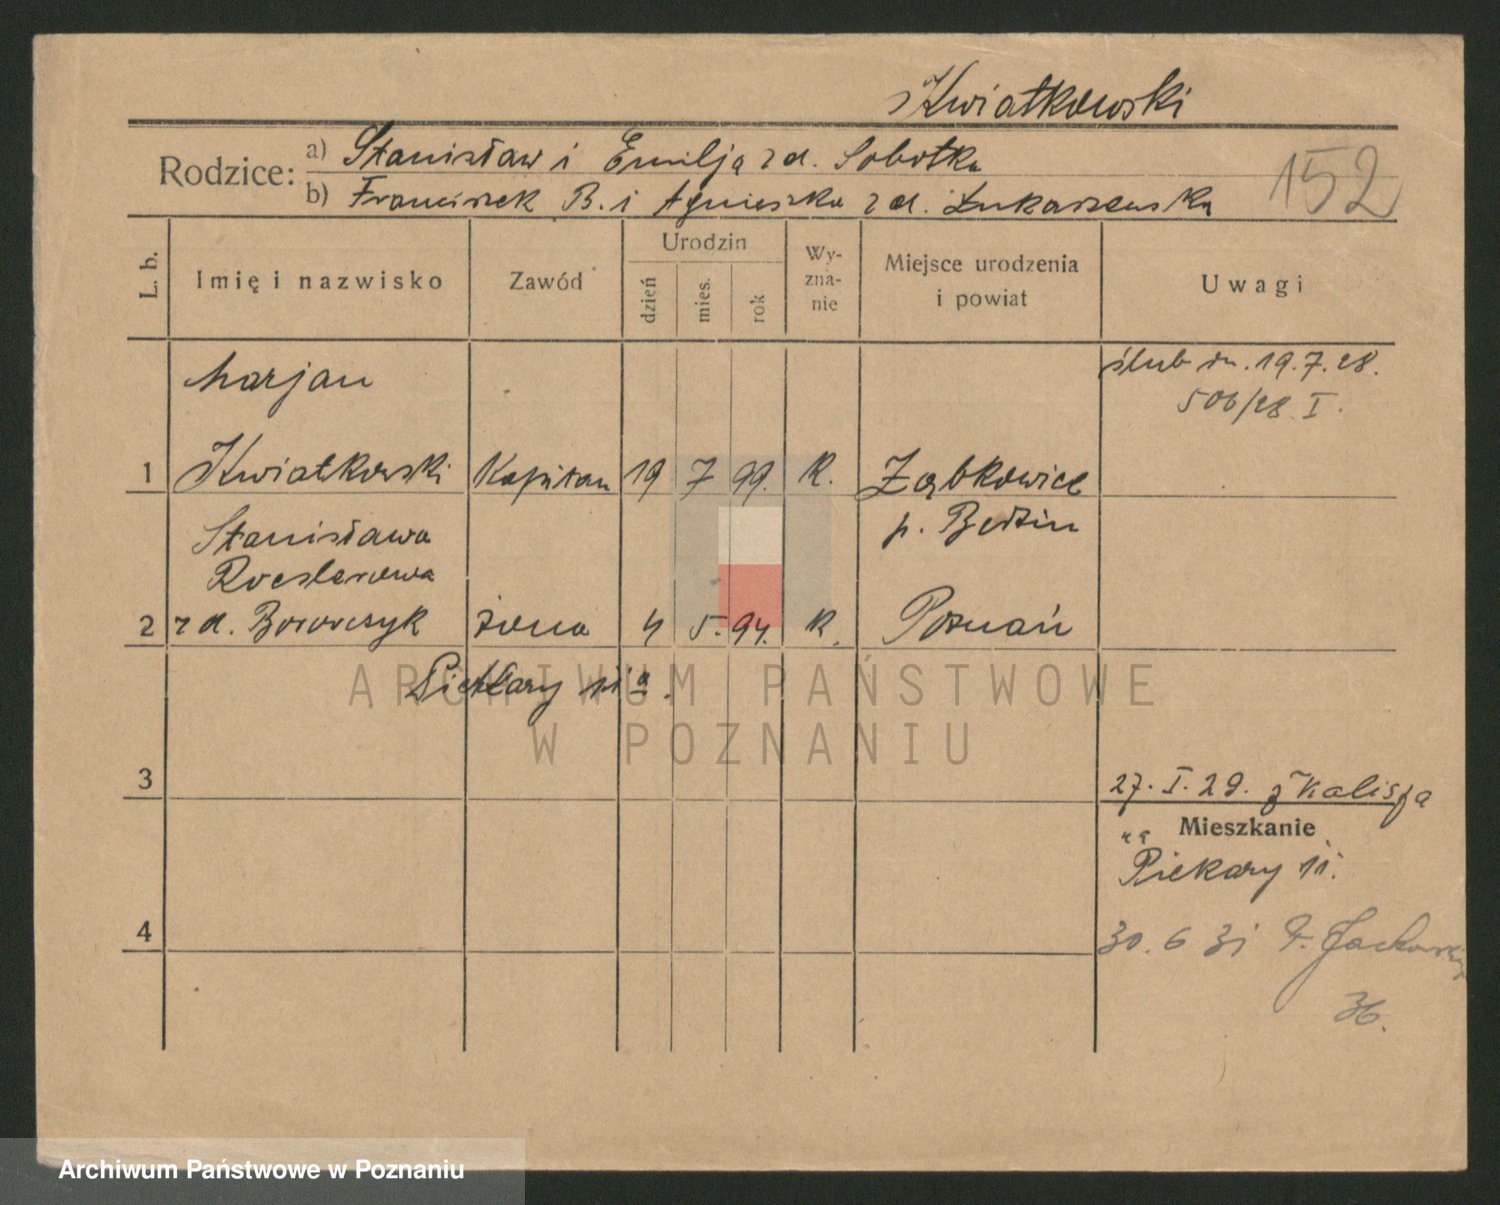 Kwiatkowski
Rodzice: a) Stanisław i Emilja z d. Sobotka
b) Franciszek B. i Agnieszka z d. Łukaszewska
152
L. b.
Imię i nazwisko
Zawód
Urodzin
dzień
mies.
rok
Wy-
zna-
nie
Miejsce urodzenia
i powiat
Uwagi
Marjan
ślub dn. 19.7.28.
506/28 I.
1 Kwiatkowski Kapitan 19 7 99. K. Ząbkowice
p. Będzin
Stanisława
Roeslerowa
2 z d. Borowczyk żona 4 5. 94. K. Poznań
Piekary 11 a.
ARCHIWUM PAŃSTWOWE
W POZNANIU
3
27. I. 29. z Kalisza
na
Mieszkanie
Piekary 11.
4
30. 6 31
36.
Archiwum Państwowe w Poznaniu